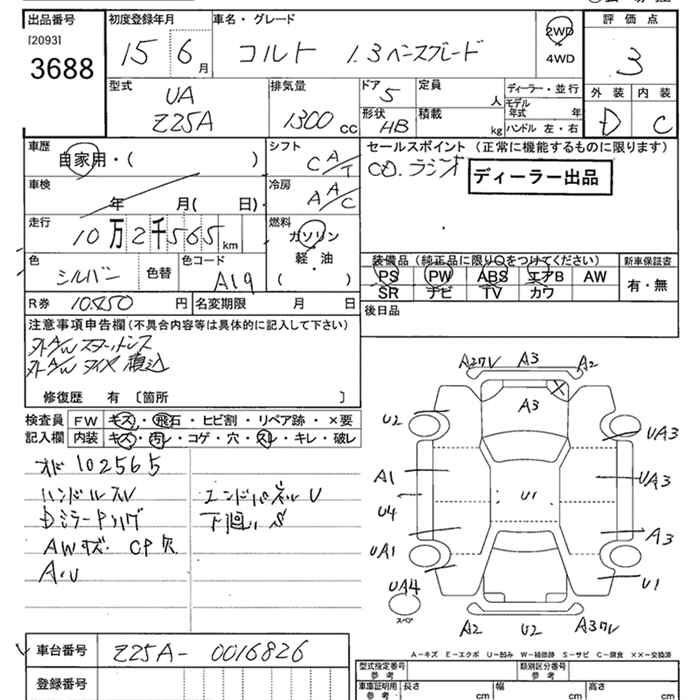 出品番号 初度登録年月 車名・グレード 2WD 評価点
[2093] 15年 6月 コルト 1.3ベースグレード 4WD 3
3688
型式 排気量 ドア 定員 ディーラー・並行 外装 内装
UA 5 人 モデル年式 年
Z25A 1300cc 形状 HB 積載 kg ハンドル 左・右 D C
車歴 シフト セールスポイント (正常に機能するものに限ります)
自家用・( ) C A/T CD.ラジオ ディーラー出品
車検 年 月( 日)・ 冷房 A A/C
走行 燃料
10万2千565km ガソリン
色 色替 色コード 軽・油 装備品(純正品に限り○をつけてください) 新車保証書
シルバー A19 ( ) PS PW ABS エアB AW 有・無
SR ナビ TV カワ
R券 10450円 名変期限 月 日 後日品
注意事項申告欄(不具合内容等は具体的に記入して下さい)
外AWスタッドレス
外AWタイヤ積込
修復歴 有 〔箇所 〕
検査員 FW キズ・飛石・ヒビ割・リペア跡・×要
記入欄 内装 キズ・汚レ・コゲ・穴・スレ・キレ・破レ
オド102565
ハンドルスレ エンドパネルU
下回りS
AWキズ. CP欠
A.U
A2 A3 A2
A3
U2 UA3
A1 UA3
U4 U1
UA1 A3
UA4 U1
スペア
A2 U2
A-キズ E-エクボ U-凹み W-補修跡 S-サビ C-腐食 ××-交換済
車台番号 Z25A-0016826
型式指定番号 参考 類別区分番号 参考
登録番号 車庫証明用 参考 長さ cm 幅 cm 高さ cm